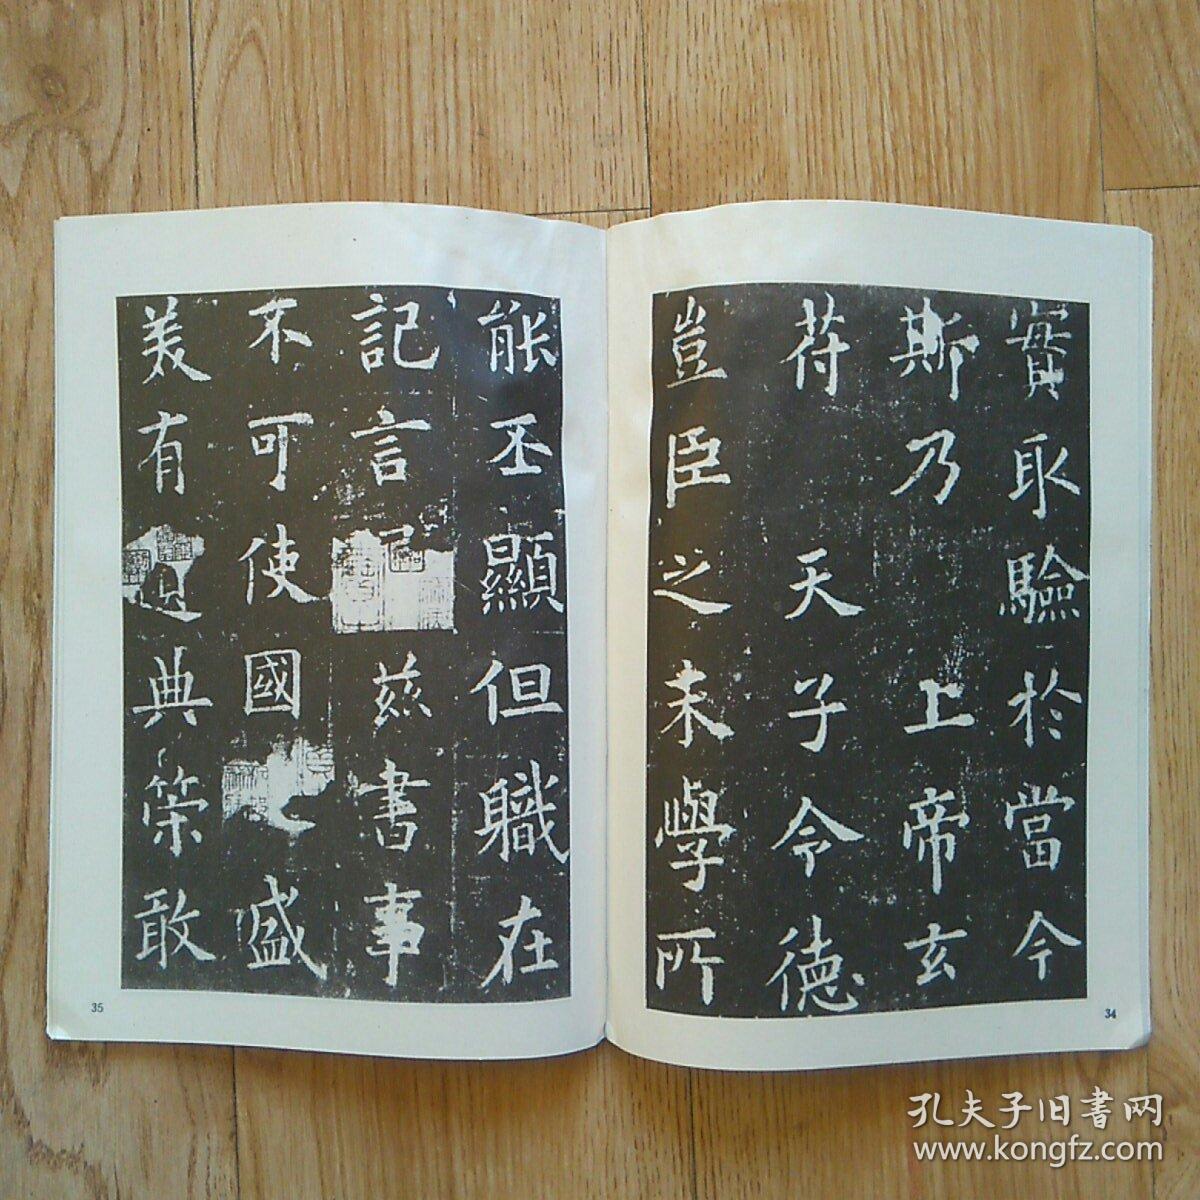 實取驗於當今
斯乃上帝玄
苻天子令德
豈臣之末學所
34
能丕顯但職在
記言茲書事
不可使國盛
美有典策敢
35
孔夫子旧書网
www.kongfz.com